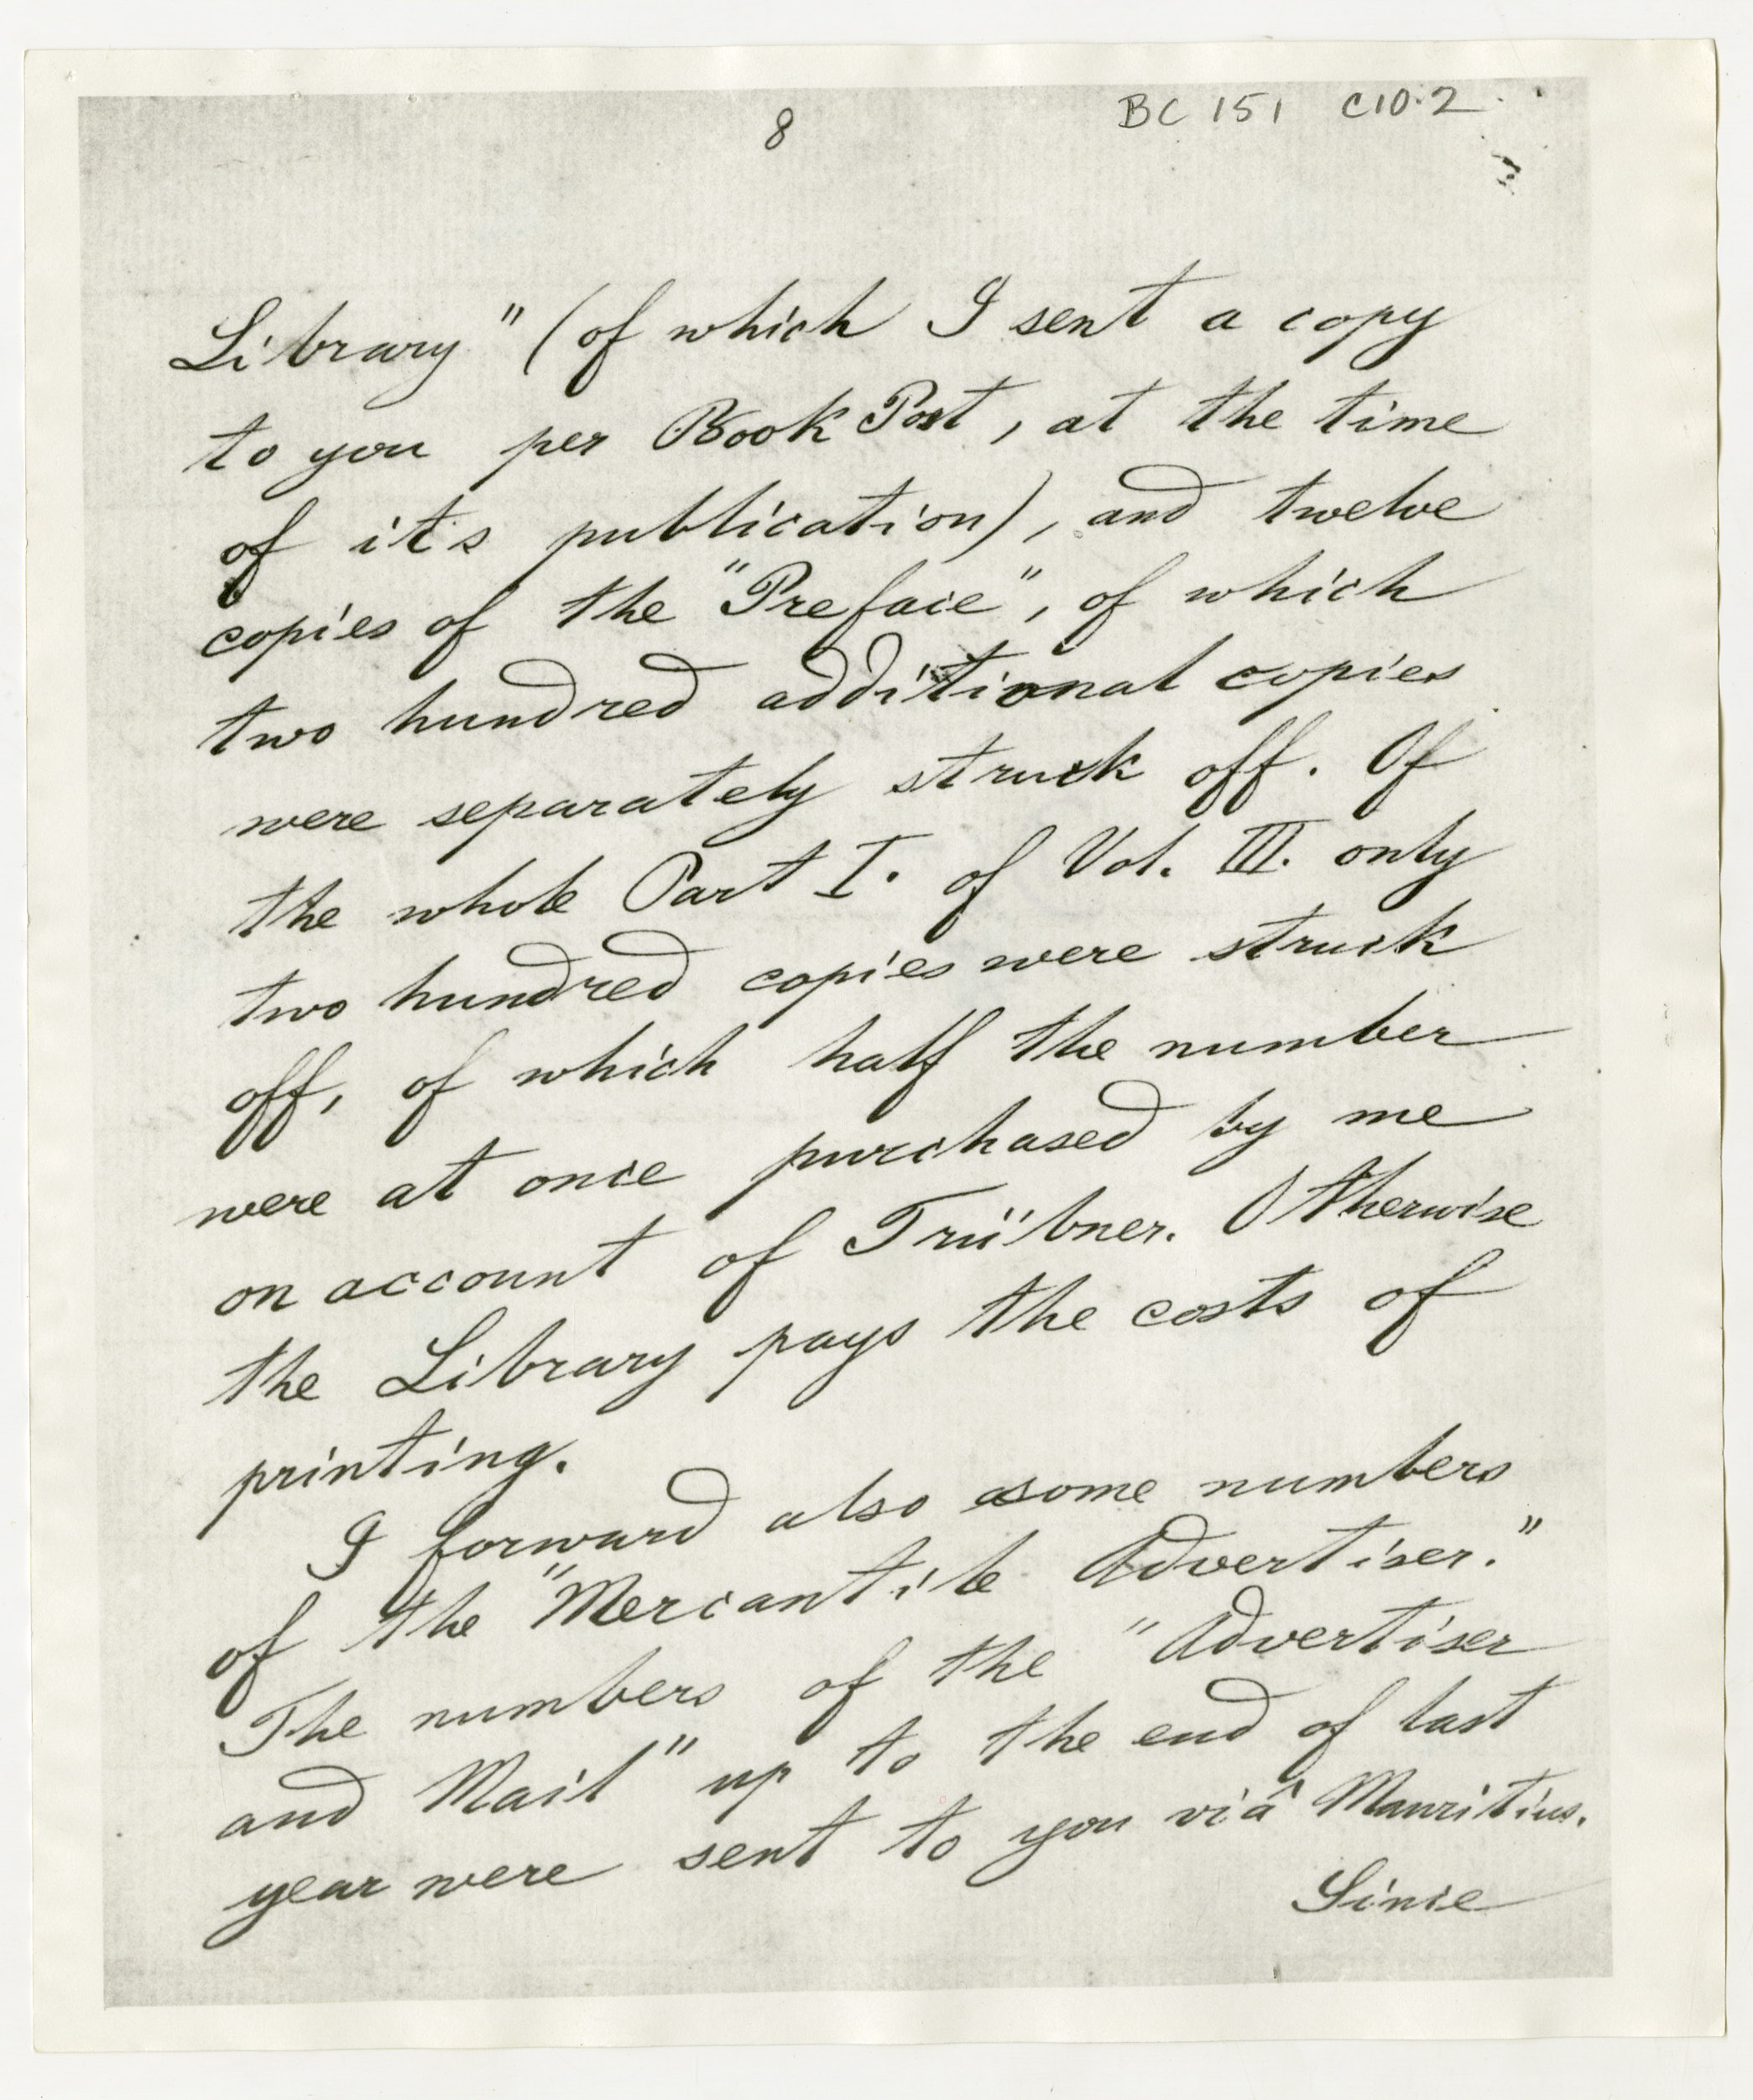 8
BC 151 C10.2
Library" (of which I sent a copy
to you per Book Post, at the time
of it's publication), and twelve
copies of the "Preface", of which
two hundred additional copies
were separately struck off. Of
the whole Part I. of Vol. III. only
two hundred copies were struck
off, of which half the number
were at once purchased by me
on account of Trübner. Otherwise
the Library pays the costs of
printing.
I forward also some numbers
of the "Mercantile Advertiser."
The numbers of the "Advertiser
and Mail" up to the end of last
year were sent to you viâ Mauritius.
Since